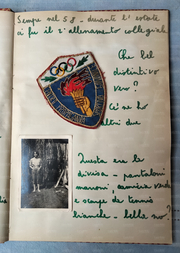 Sempre nel 58 - durante l'estate
ci fu il 2° allenamento collegiale
Che bel
distintivo
vero?
Ce ne ho
altri due
Questa era la
divisa - pantaloni
marroni, camicia verde
e scarpe da tennis
bianche - bella no?